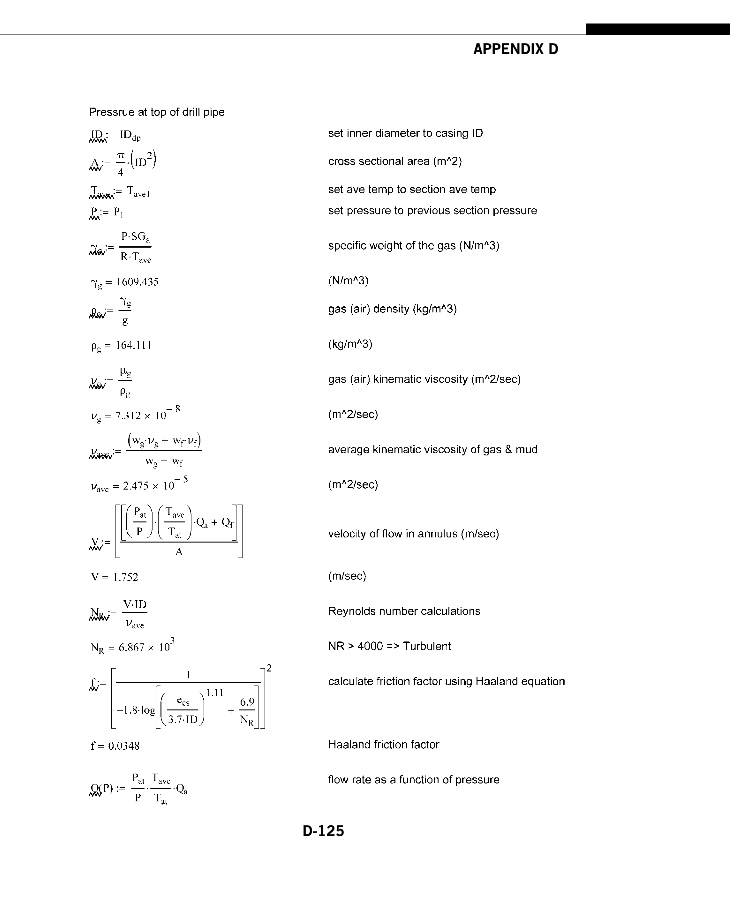 APPENDIX D
Pressrue at top of drill pipe
ID := ID_dp set inner diameter to casing ID
A := π/4·(ID^2) cross sectional area (m^2)
T_ave := T_ave1 set ave temp to section ave temp
P := P_1 set pressure to previous section pressure
γ_g := P·SG_a / R·T_ave specific weight of the gas (N/m^3)
γ_g = 1609.435 (N/m^3)
ρ_g := γ_g / g gas (air) density (kg/m^3)
ρ_g = 164.111 (kg/m^3)
ν_g := μ_g / ρ_g gas (air) kinematic viscosity (m^2/sec)
ν_g = 7.312 × 10^-8 (m^2/sec)
ν_ave := (w_g·ν_g + w_f·ν_f) / w_g + w_f average kinematic viscosity of gas & mud
ν_ave = 2.475 × 10^-5 (m^2/sec)
V := [[[(P_at / P)·(T_ave / T_at)·Q_a + Q_f]] / A] velocity of flow in annulus (m/sec)
V = 1.752 (m/sec)
N_R := V·ID / ν_ave Reynolds number calculations
N_R = 6.867 × 10^3 NR > 4000 => Turbulent
f := [1 / -1.8·log[(e_cs / 3.7·ID)^1.11 + 6.9 / N_R]]^2 calculate friction factor using Haaland equation
f = 0.0348 Haaland friction factor
Q(P) := P_at / P · T_ave / T_at ·Q_a flow rate as a function of pressure
D-125